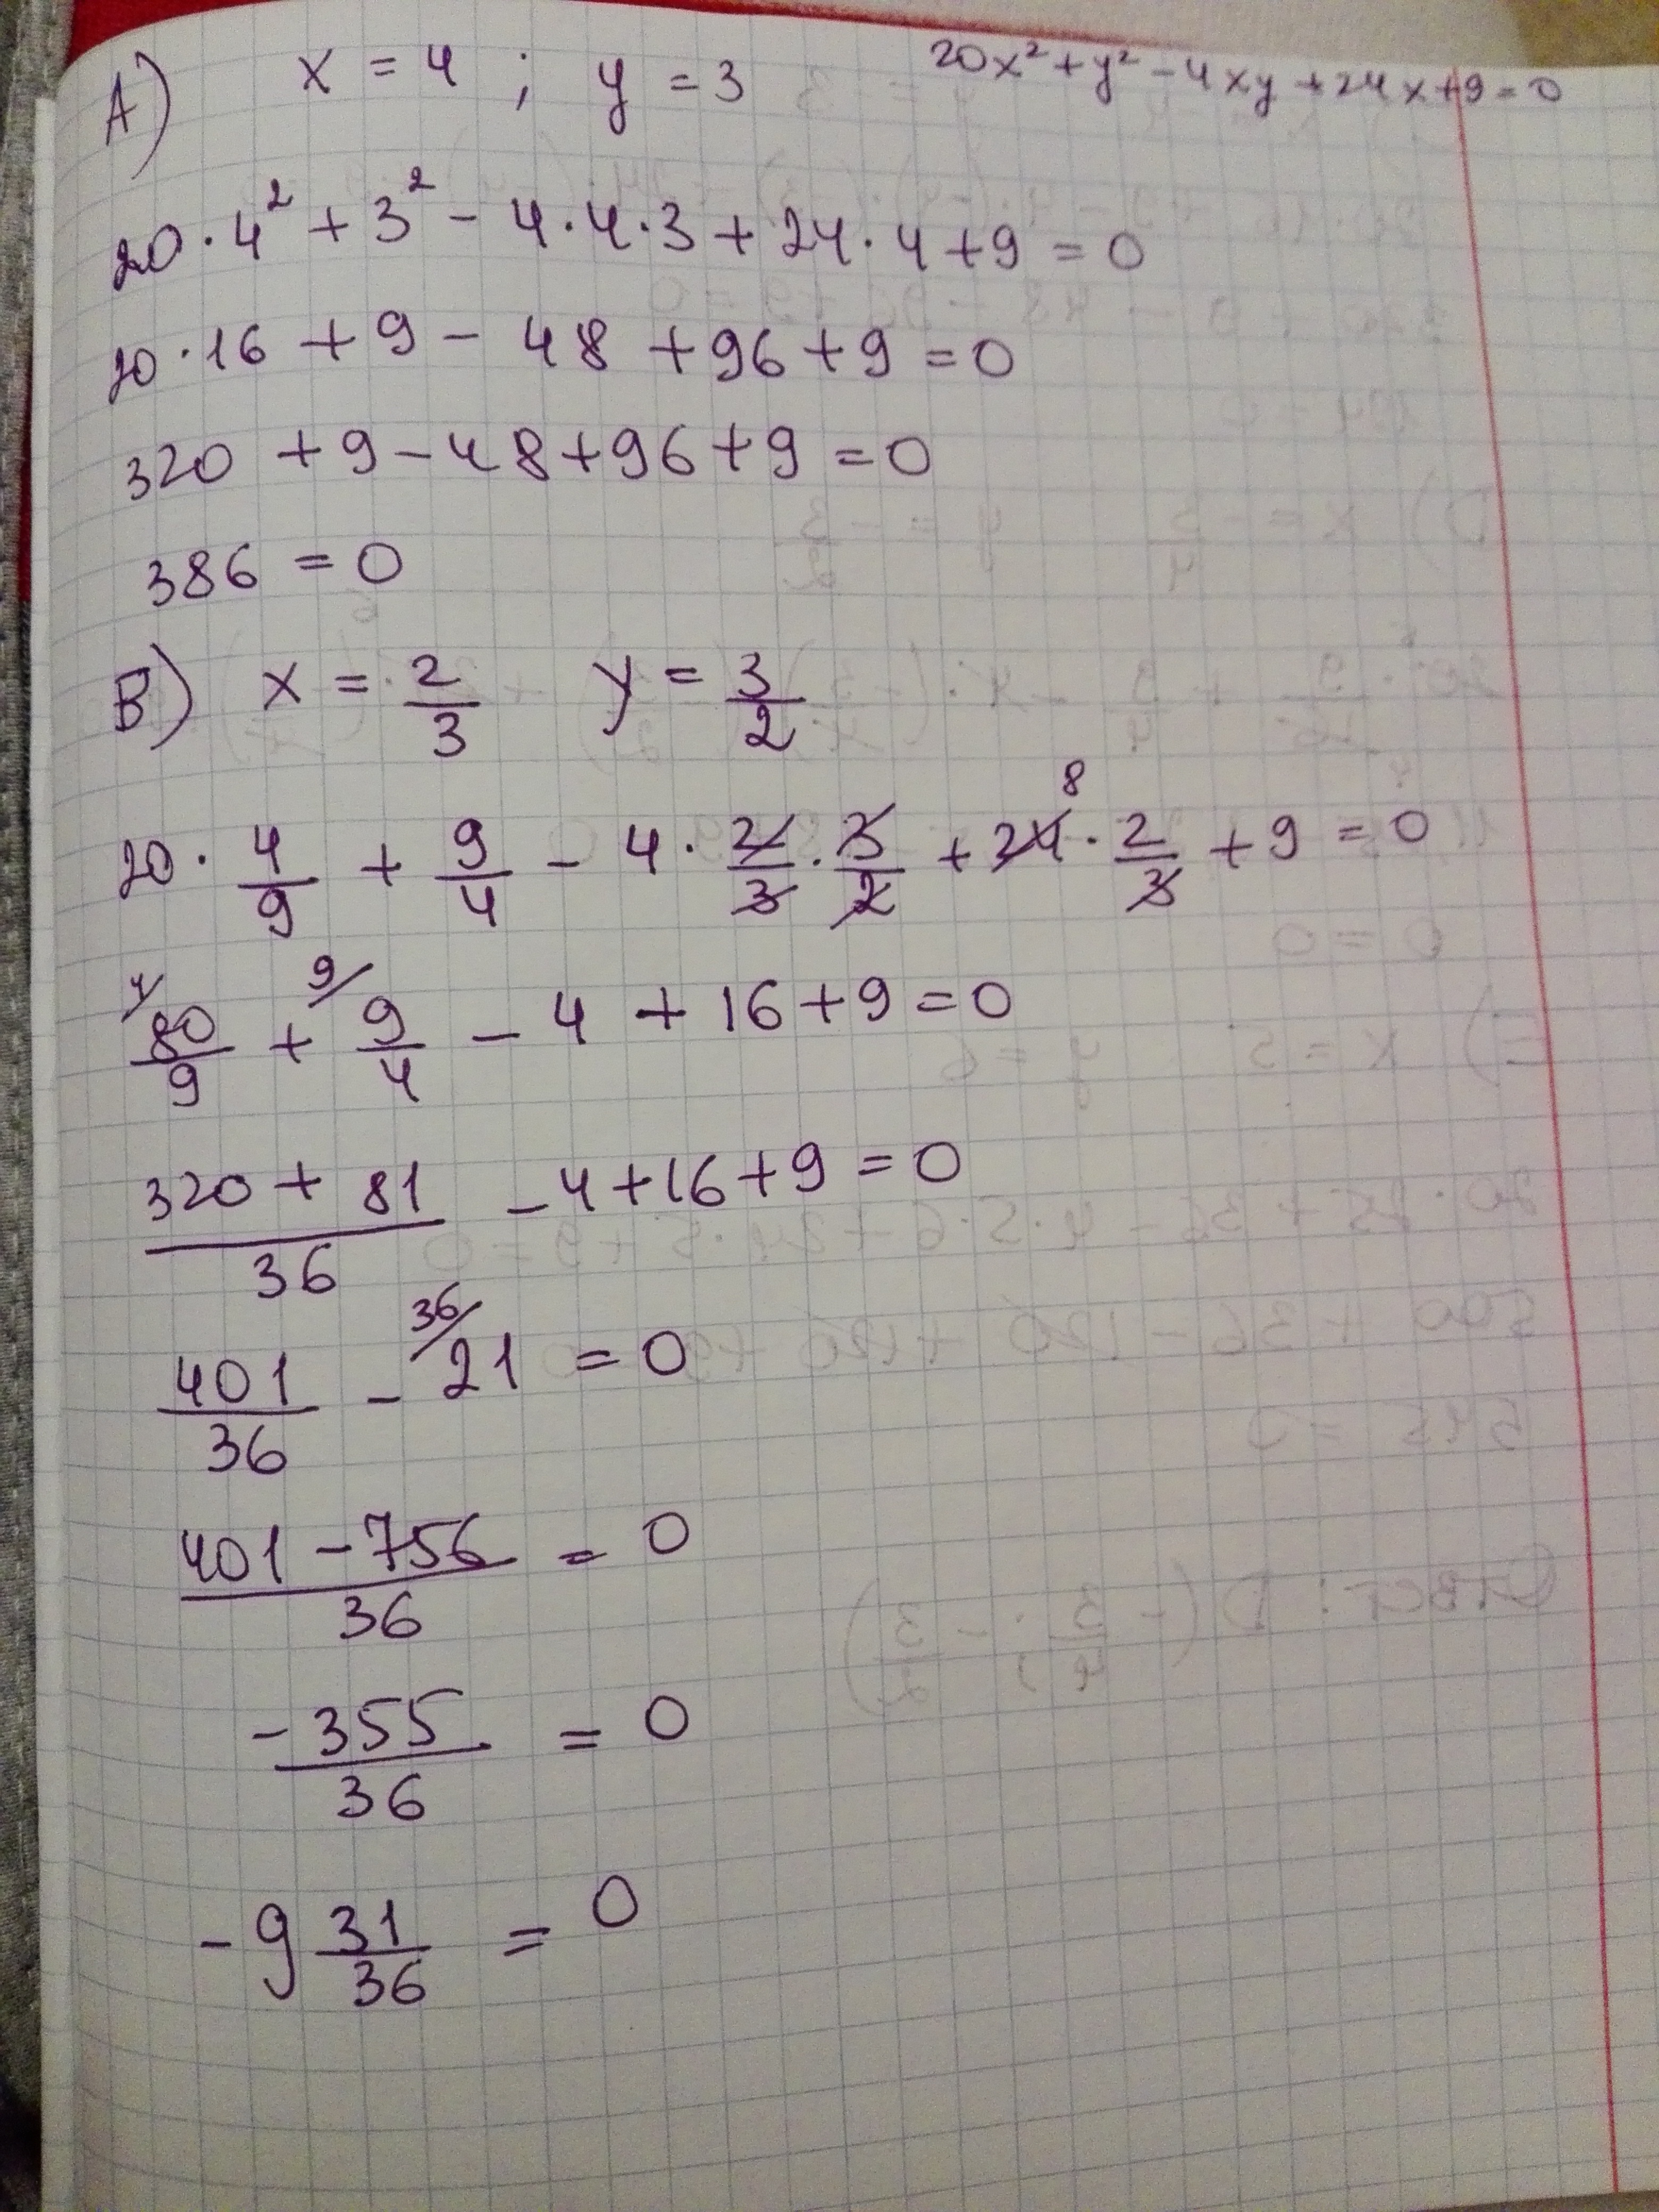 A) x = 4 ; y = 3 20x² + y² - 4xy + 24x + 9 = 0
20 · 4² + 3² - 4 · 4 · 3 + 24 · 4 + 9 = 0
20 · 16 + 9 - 48 + 96 + 9 = 0
320 + 9 - 48 + 96 + 9 = 0
386 = 0
B) x = 2/3 y = 3/2
8
20 · 4/9 + 9/4 - 4 · 2/3 · 3/2 + 24 · 2/3 + 9 = 0
4/ 80/9 + 9/ 9/4 - 4 + 16 + 9 = 0
(320 + 81)/36 - 4 + 16 + 9 = 0
401/36 - 36/ 21 = 0
(401 - 756)/36 = 0
-355/36 = 0
-9 31/36 = 0